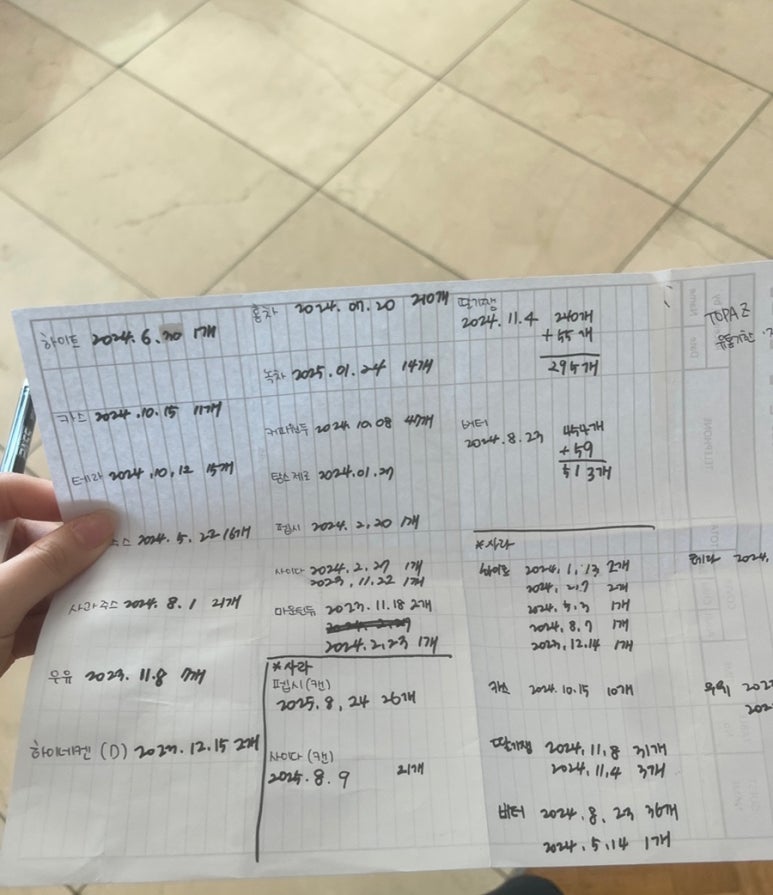 하이트 2024.6.30 1개
카스 2024.10.15 11개
테라 2024.10.12 15개
주스 2024.5.22 16개
사라주스 2024.8.1 21개
우유 2023.11.8 7개
하이네켄 (D) 2023.12.15 2개
홍차 2024.07.20 210개
녹차 2025.01.24 14개
커피원두 2024.10.08 47개
탐스제로 2024.01.27
펩시 2024.2.20 1개
사이다 2024.2.27 1개
2023.11.22 1개
마운틴듀 2023.11.18 2개
2024.2.23 1개
*사라
펩시(캔)
2025.8.24 26개
사이다 (캔)
2025.8.9 21개
딸기쨈
2024.11.4 240개
+55개
295개
버터
2024.8.23 454개
+59
513개
*사라
하이트 2024.1.13 2개
2024.2.7 2개
2024.3.3 1개
2024.8.7 1개
2023.12.14 1개
카스 2024.10.15 10개
딸기쨈 2024.11.8 31개
2024.11.4 3개
버터 2024.8.23 36개
2024.5.14 1개
TOPAZ
유통기한
테라 2024.